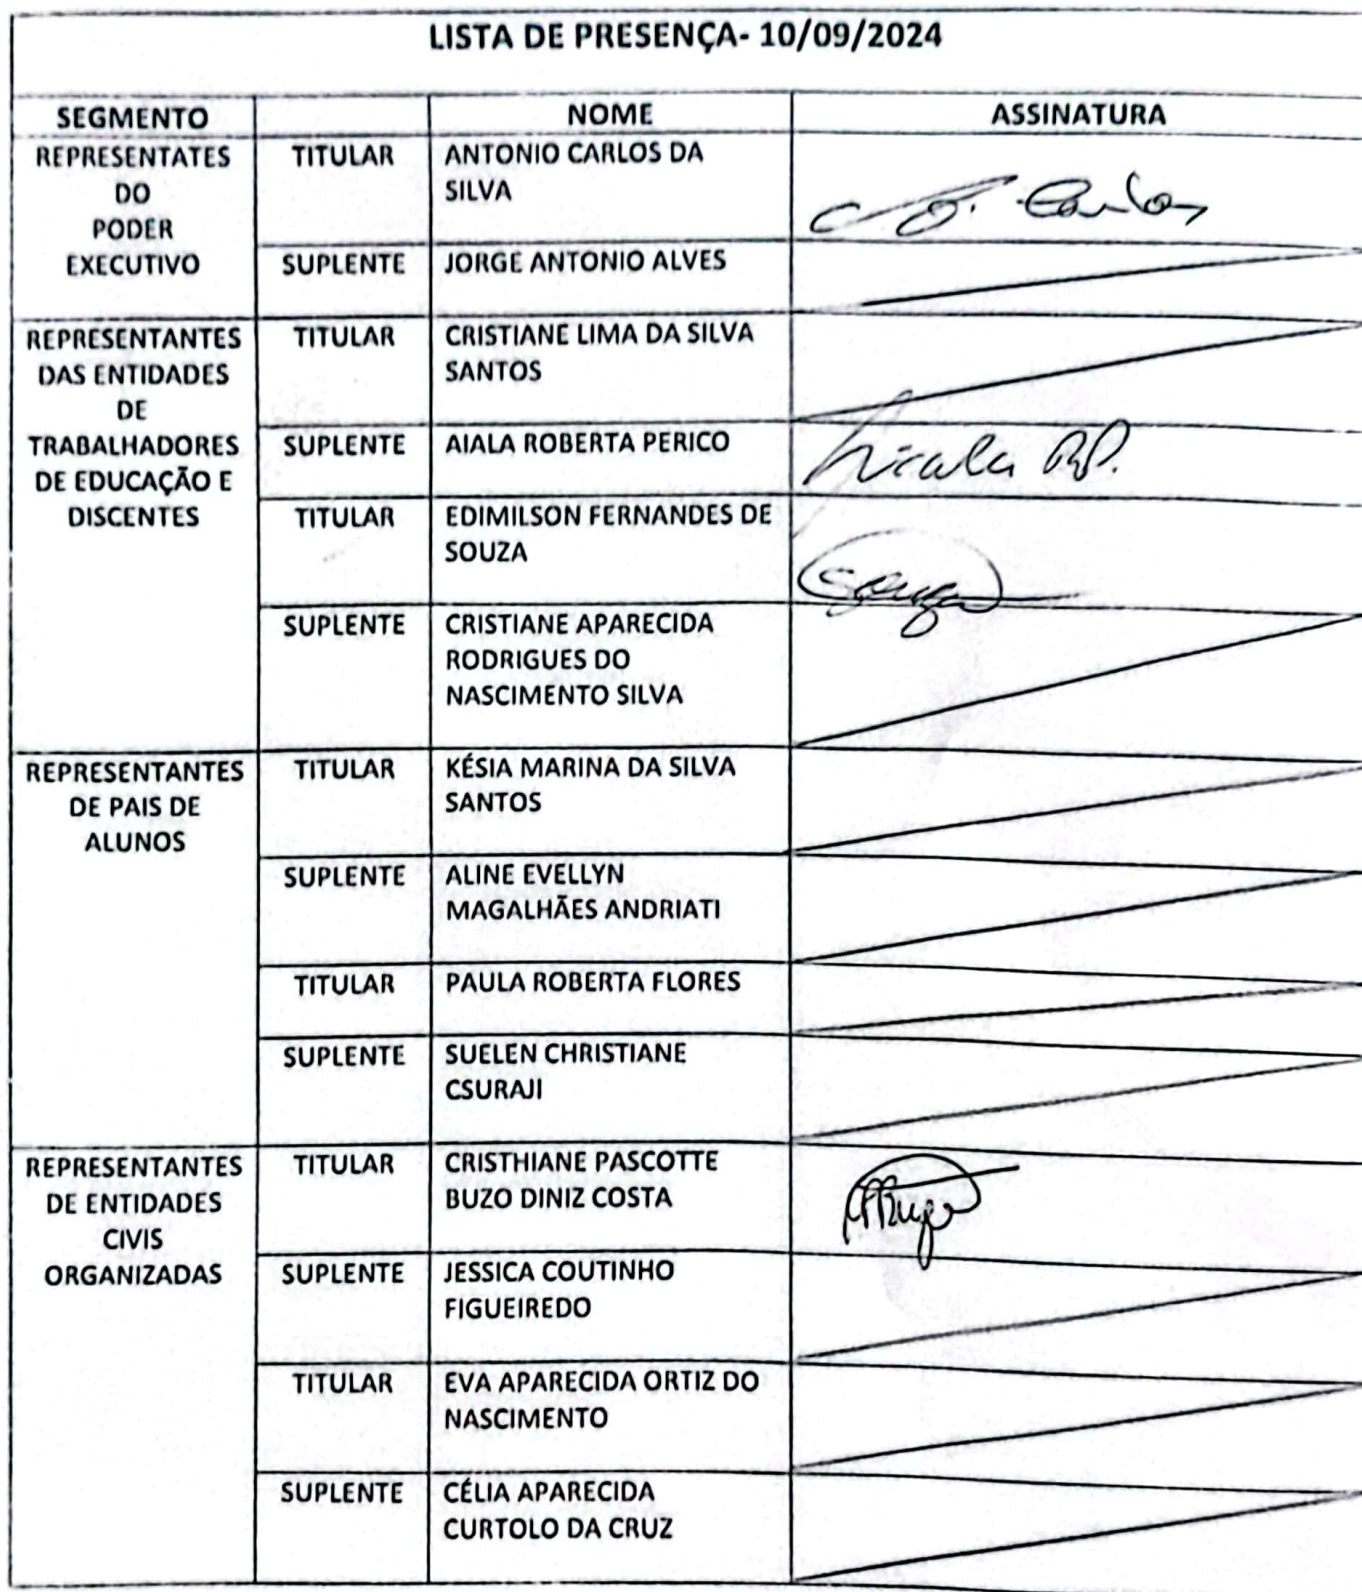 LISTA DE PRESENÇA- 10/09/2024
SEGMENTO NOME ASSINATURA
REPRESENTATES
DO
PODER
EXECUTIVO
TITULAR
ANTONIO CARLOS DA
SILVA
Carlos
SUPLENTE
JORGE ANTONIO ALVES
REPRESENTANTES
DAS ENTIDADES
DE
TRABALHADORES
DE EDUCAÇÃO E
DISCENTES
TITULAR
CRISTIANE LIMA DA SILVA
SANTOS
SUPLENTE
AIALA ROBERTA PERICO
TITULAR
EDIMILSON FERNANDES DE
SOUZA
Souza
SUPLENTE
CRISTIANE APARECIDA
RODRIGUES DO
NASCIMENTO SILVA
REPRESENTANTES
DE PAIS DE
ALUNOS
TITULAR
KÉSIA MARINA DA SILVA
SANTOS
SUPLENTE
ALINE EVELLYN
MAGALHÃES ANDRIATI
TITULAR
PAULA ROBERTA FLORES
SUPLENTE
SUELEN CHRISTIANE
CSURAJI
REPRESENTANTES
DE ENTIDADES
CIVIS
ORGANIZADAS
TITULAR
CRISTHIANE PASCOTTE
BUZO DINIZ COSTA
SUPLENTE
JESSICA COUTINHO
FIGUEIREDO
TITULAR
EVA APARECIDA ORTIZ DO
NASCIMENTO
SUPLENTE
CÉLIA APARECIDA
CURTOLO DA CRUZ